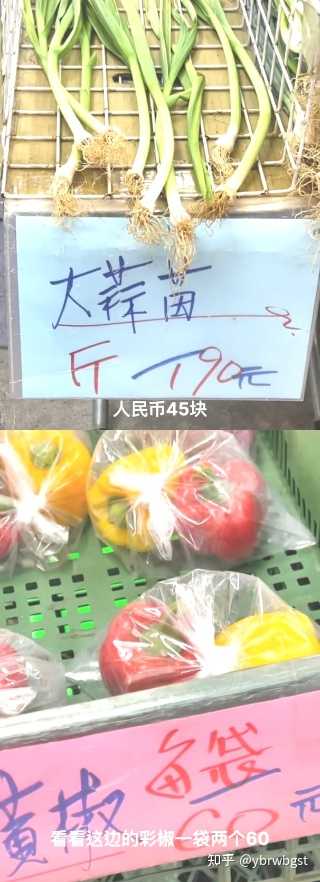 大蒜苗
斤 190元
人民币45块
每袋
黃椒 60元
看看这边的彩椒一袋两个60
知乎 @ybrwbgst